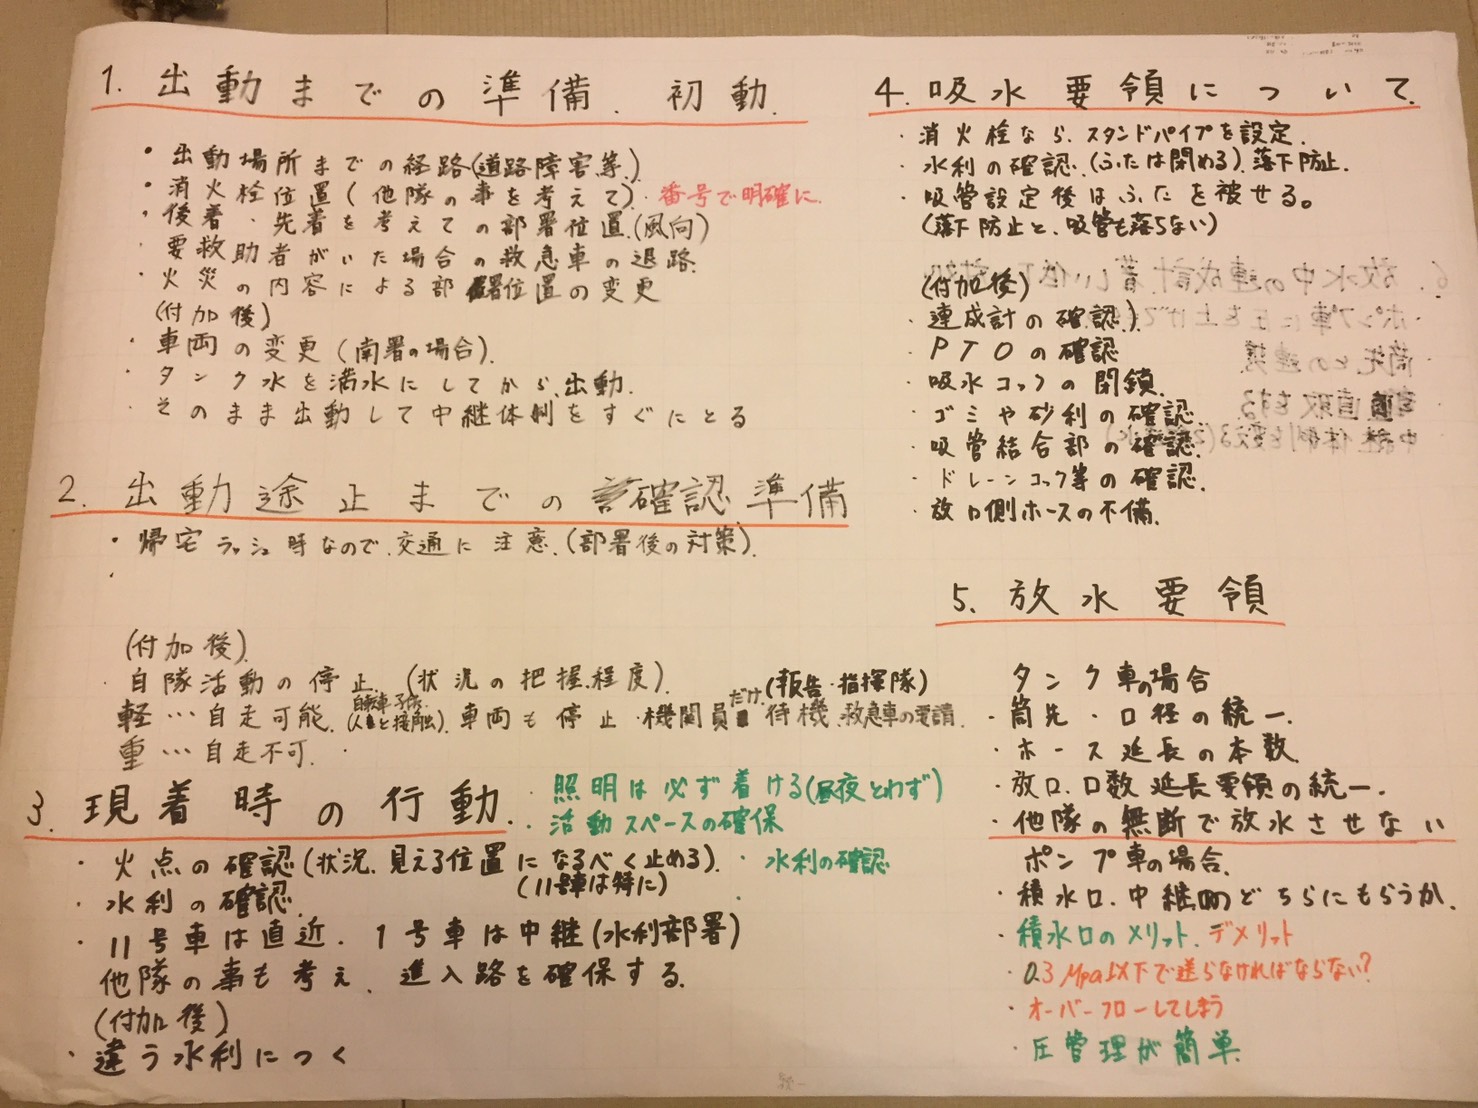 1. 出動までの準備、初動.
・出動場所までの経路(道路障害等.)
・消火栓位置(他隊の事を考えて)・番号で明確に.
・後着、先着を考えての部署位置.(風向)
・要救助者がいた場合の救急車の退路.
・火災の内容による部署位置の変更
(付加後)
・車両の変更(南署の場合).
・タンク水を満水にしてから、出動.
・そのまま出動して中継体制をすぐにとる
2. 出動途止までの確認準備
・帰宅ラッシュ時なので、交通に注意.(部署後の対策).
・
(付加後).
・自隊活動の停止. (状況の把握.程度).
(報告・指揮隊)
軽…自走可能. (人と接触). 車両も停止・機関員だけ待機.救急車の要請.
重…自走不可.
3. 現着時の行動.
・照明は必ず着ける(昼夜とわず)
・活動スペースの確保
・水利の確認
・火点の確認(状況、見える位置になるべく止める).
(11号車は特に)
・水利の確認.
・11号車は直近. 1号車は中継(水利部署)
他隊の事も考え、進入路を確保する.
(付加後)
・違う水利につく
4. 吸水要領について.
・消火栓なら、スタンドパイプを設定.
・水利の確認.(ふたは閉める).落下防止.
・吸管設定後はふたを被せる。
(落下防止と、吸管も落ちない)
(付加後)
・連成計の確認.)
・PTOの確認
・吸水コックの閉鎖.
・ゴミや砂利の確認.
・吸管結合部の確認.
・ドレーンコック等の確認.
・放口側ホースの不備.
5. 放水要領
タンク車の場合
・筒先・口径の統一.
・ホース延長の本数.
・放口、口数 延長要領の統一.
・他隊の無断で放水させない
ポンプ車の場合.
・積水口、中継口のどちらにもらうか.
・積水口のメリット、デメリット
・0.3Mpa以下で送らなければならない?
・オーバーフローしてしまう
・圧管理が簡単.
6. 放水中の連成計.著しい低下
・ポンプ車に圧を上げて
・筒先との連携
・直取をする